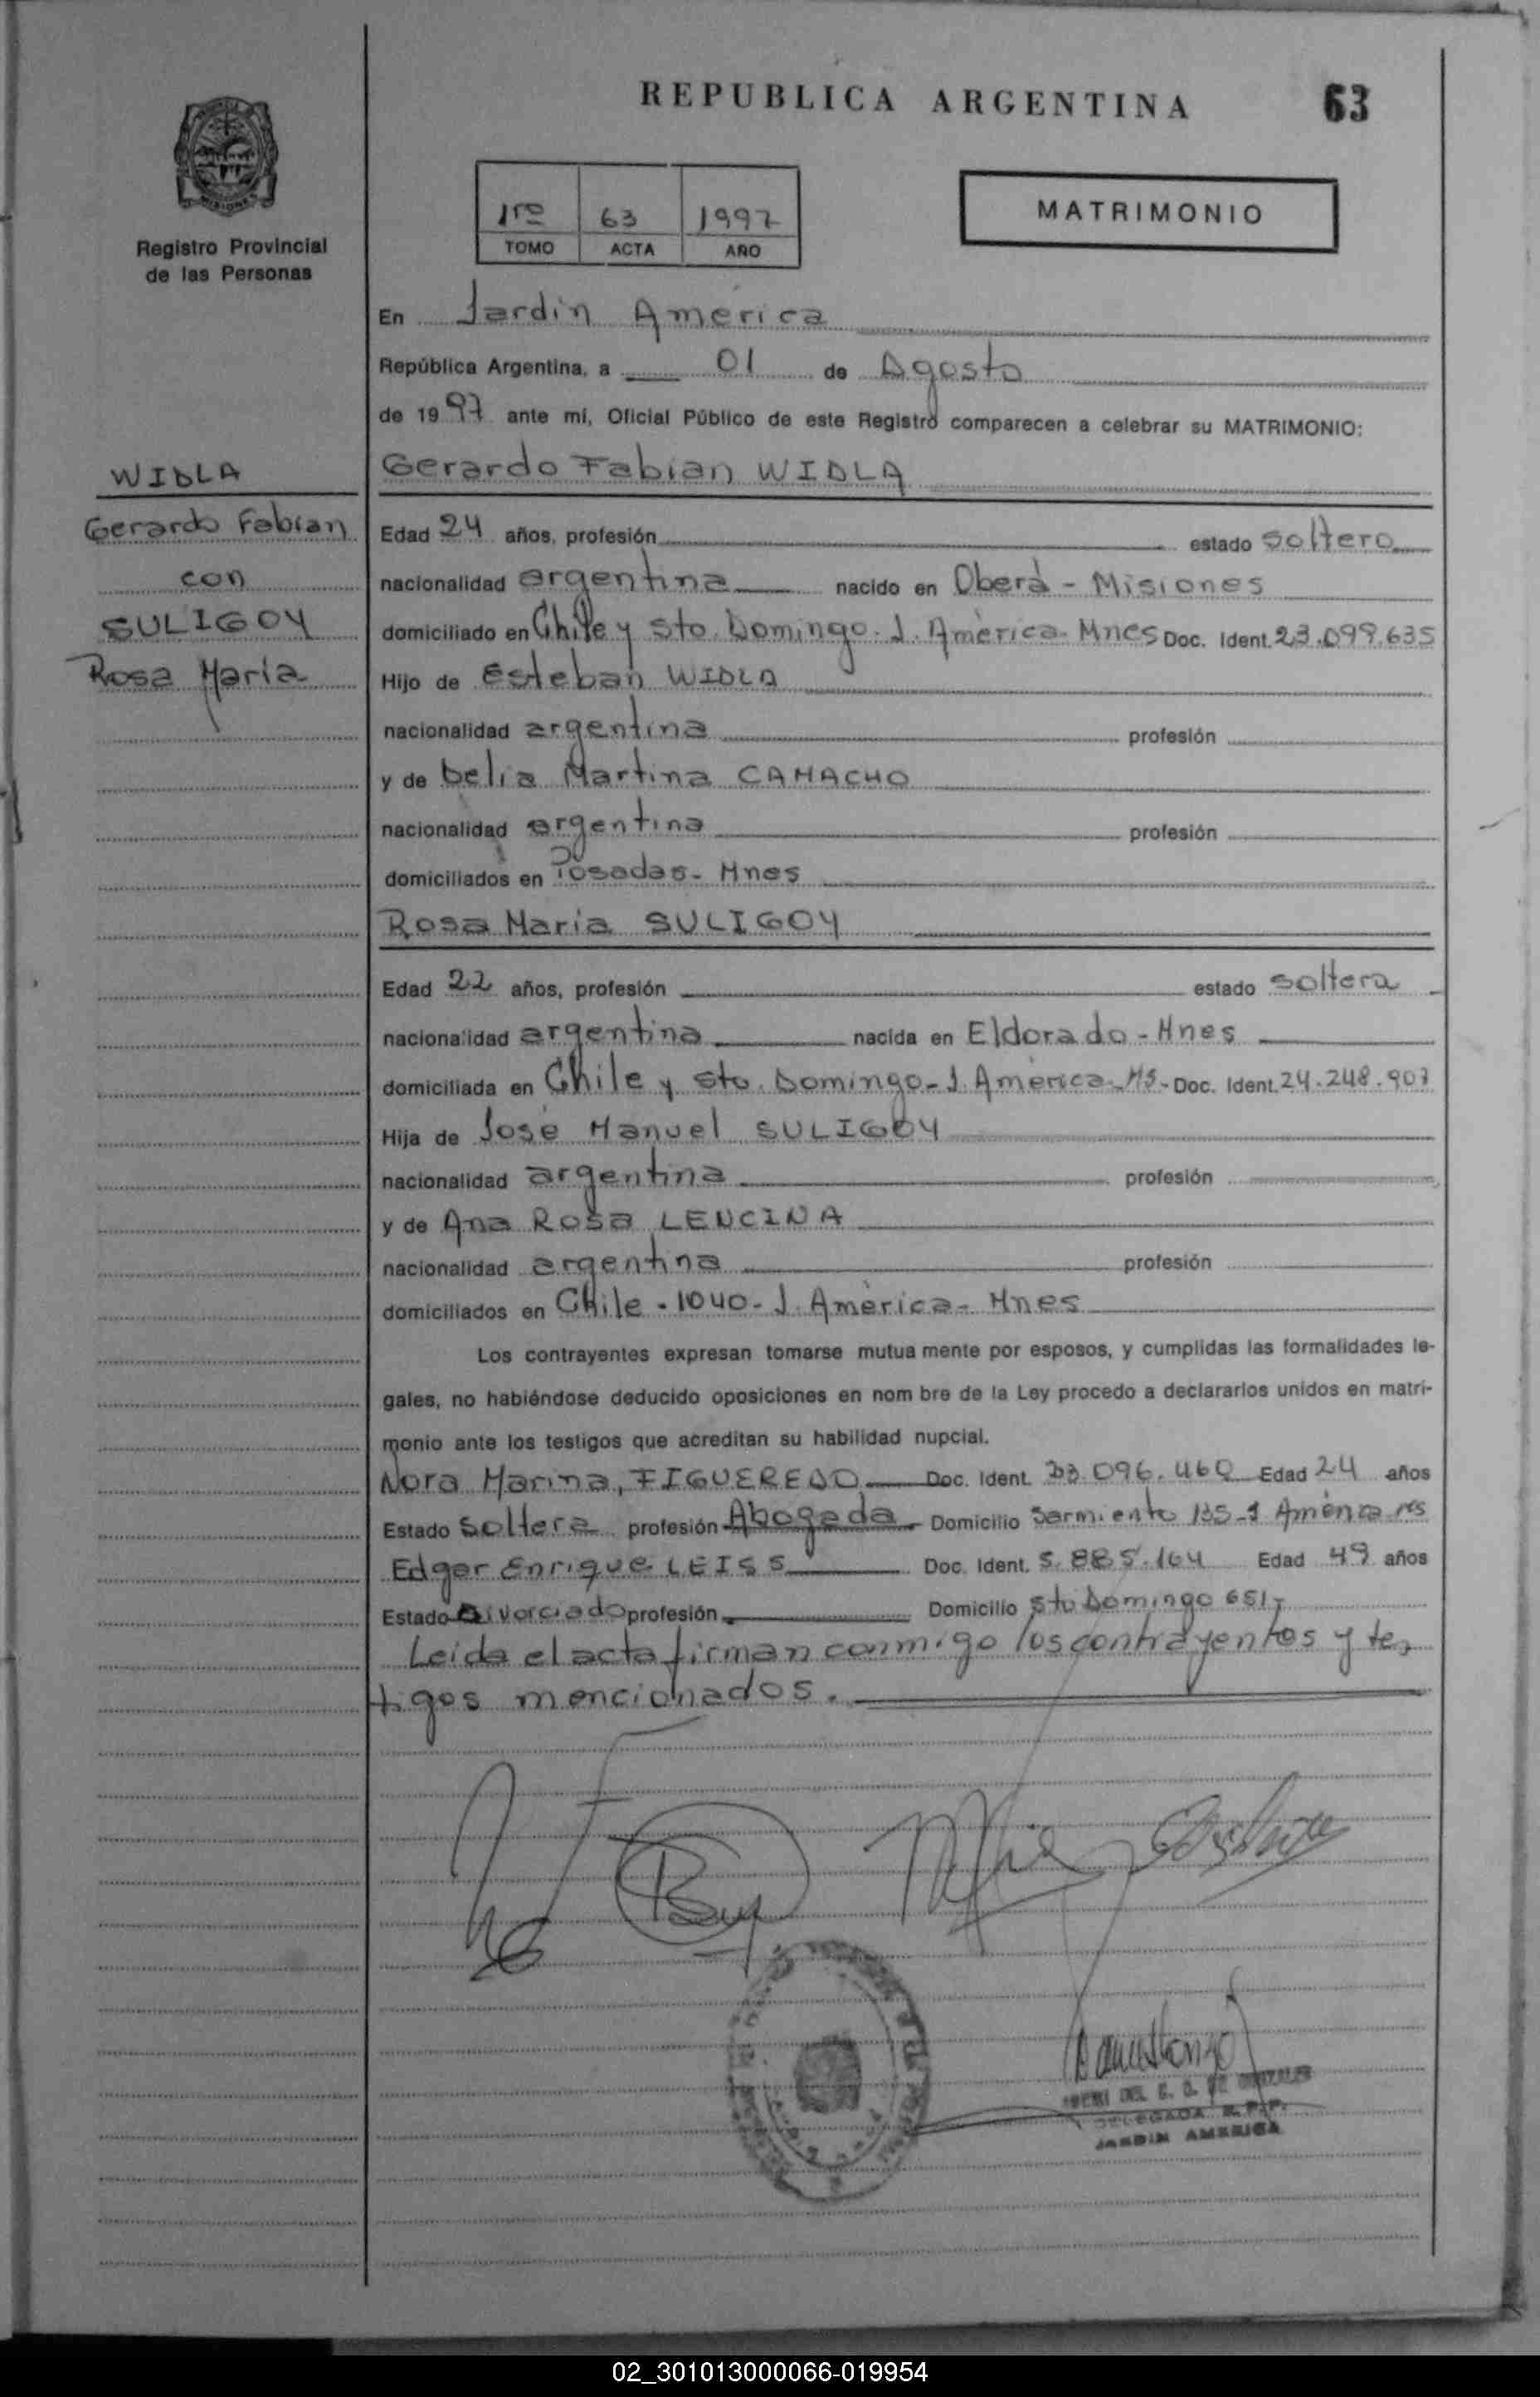 REPUBLICA ARGENTINA
63
MISIONES
Registro Provincial
de las Personas
1ro 63 1997
TOMO ACTA AÑO
MATRIMONIO
En Jardin América
República Argentina, a 01 de Agosto
de 1997 ante mí, Oficial Público de este Registro comparecen a celebrar su MATRIMONIO:
WIDLA
Gerardo Fabian
con
SULIGOY
Rosa Maria
Gerardo Fabian WIDLA
Edad 24 años, profesión estado soltero
nacionalidad argentina nacido en Oberá - Misiones
domiciliado en Chile y Sto. Domingo. J. América- Mnes Doc. Ident. 23.099.635
Hijo de Esteban WIDLA
nacionalidad argentina profesión
y de Delia Martina CAMACHO
nacionalidad argentina profesión
domiciliados en Posadas- Mnes
Rosa Maria SULIGOY
Edad 22 años, profesión estado soltera
nacionalidad argentina nacida en Eldorado - Mnes
domiciliada en Chile y Sto. Domingo- J. América-Ms- Doc. Ident. 24.248.907
Hija de José Manuel SULIGOY
nacionalidad argentina profesión
y de Ana Rosa LENCINA
nacionalidad argentina profesión
domiciliados en Chile - 1040- J. América- Mnes
Los contrayentes expresan tomarse mutua mente por esposos, y cumplidas las formalidades le-
gales, no habiéndose deducido oposiciones en nom bre de la Ley procedo a declararlos unidos en matri-
monio ante los testigos que acreditan su habilidad nupcial.
Nora Marina, FIGUEREDO Doc. Ident. Edad 24 años
Estado soltera profesión Abogada Domicilio Sarmiento 135-J América Ms
Edgar Enrique LEISS Doc. Ident. 5.885.164 Edad 49 años
Estado Divorciado profesión Domicilio Sto Domingo 651-
Leida el acta firman conmigo los contrayentes y tes
tigos mencionados.
DELEGADA R. P. P.
JARDIN AMERICA
02_301013000066-019954